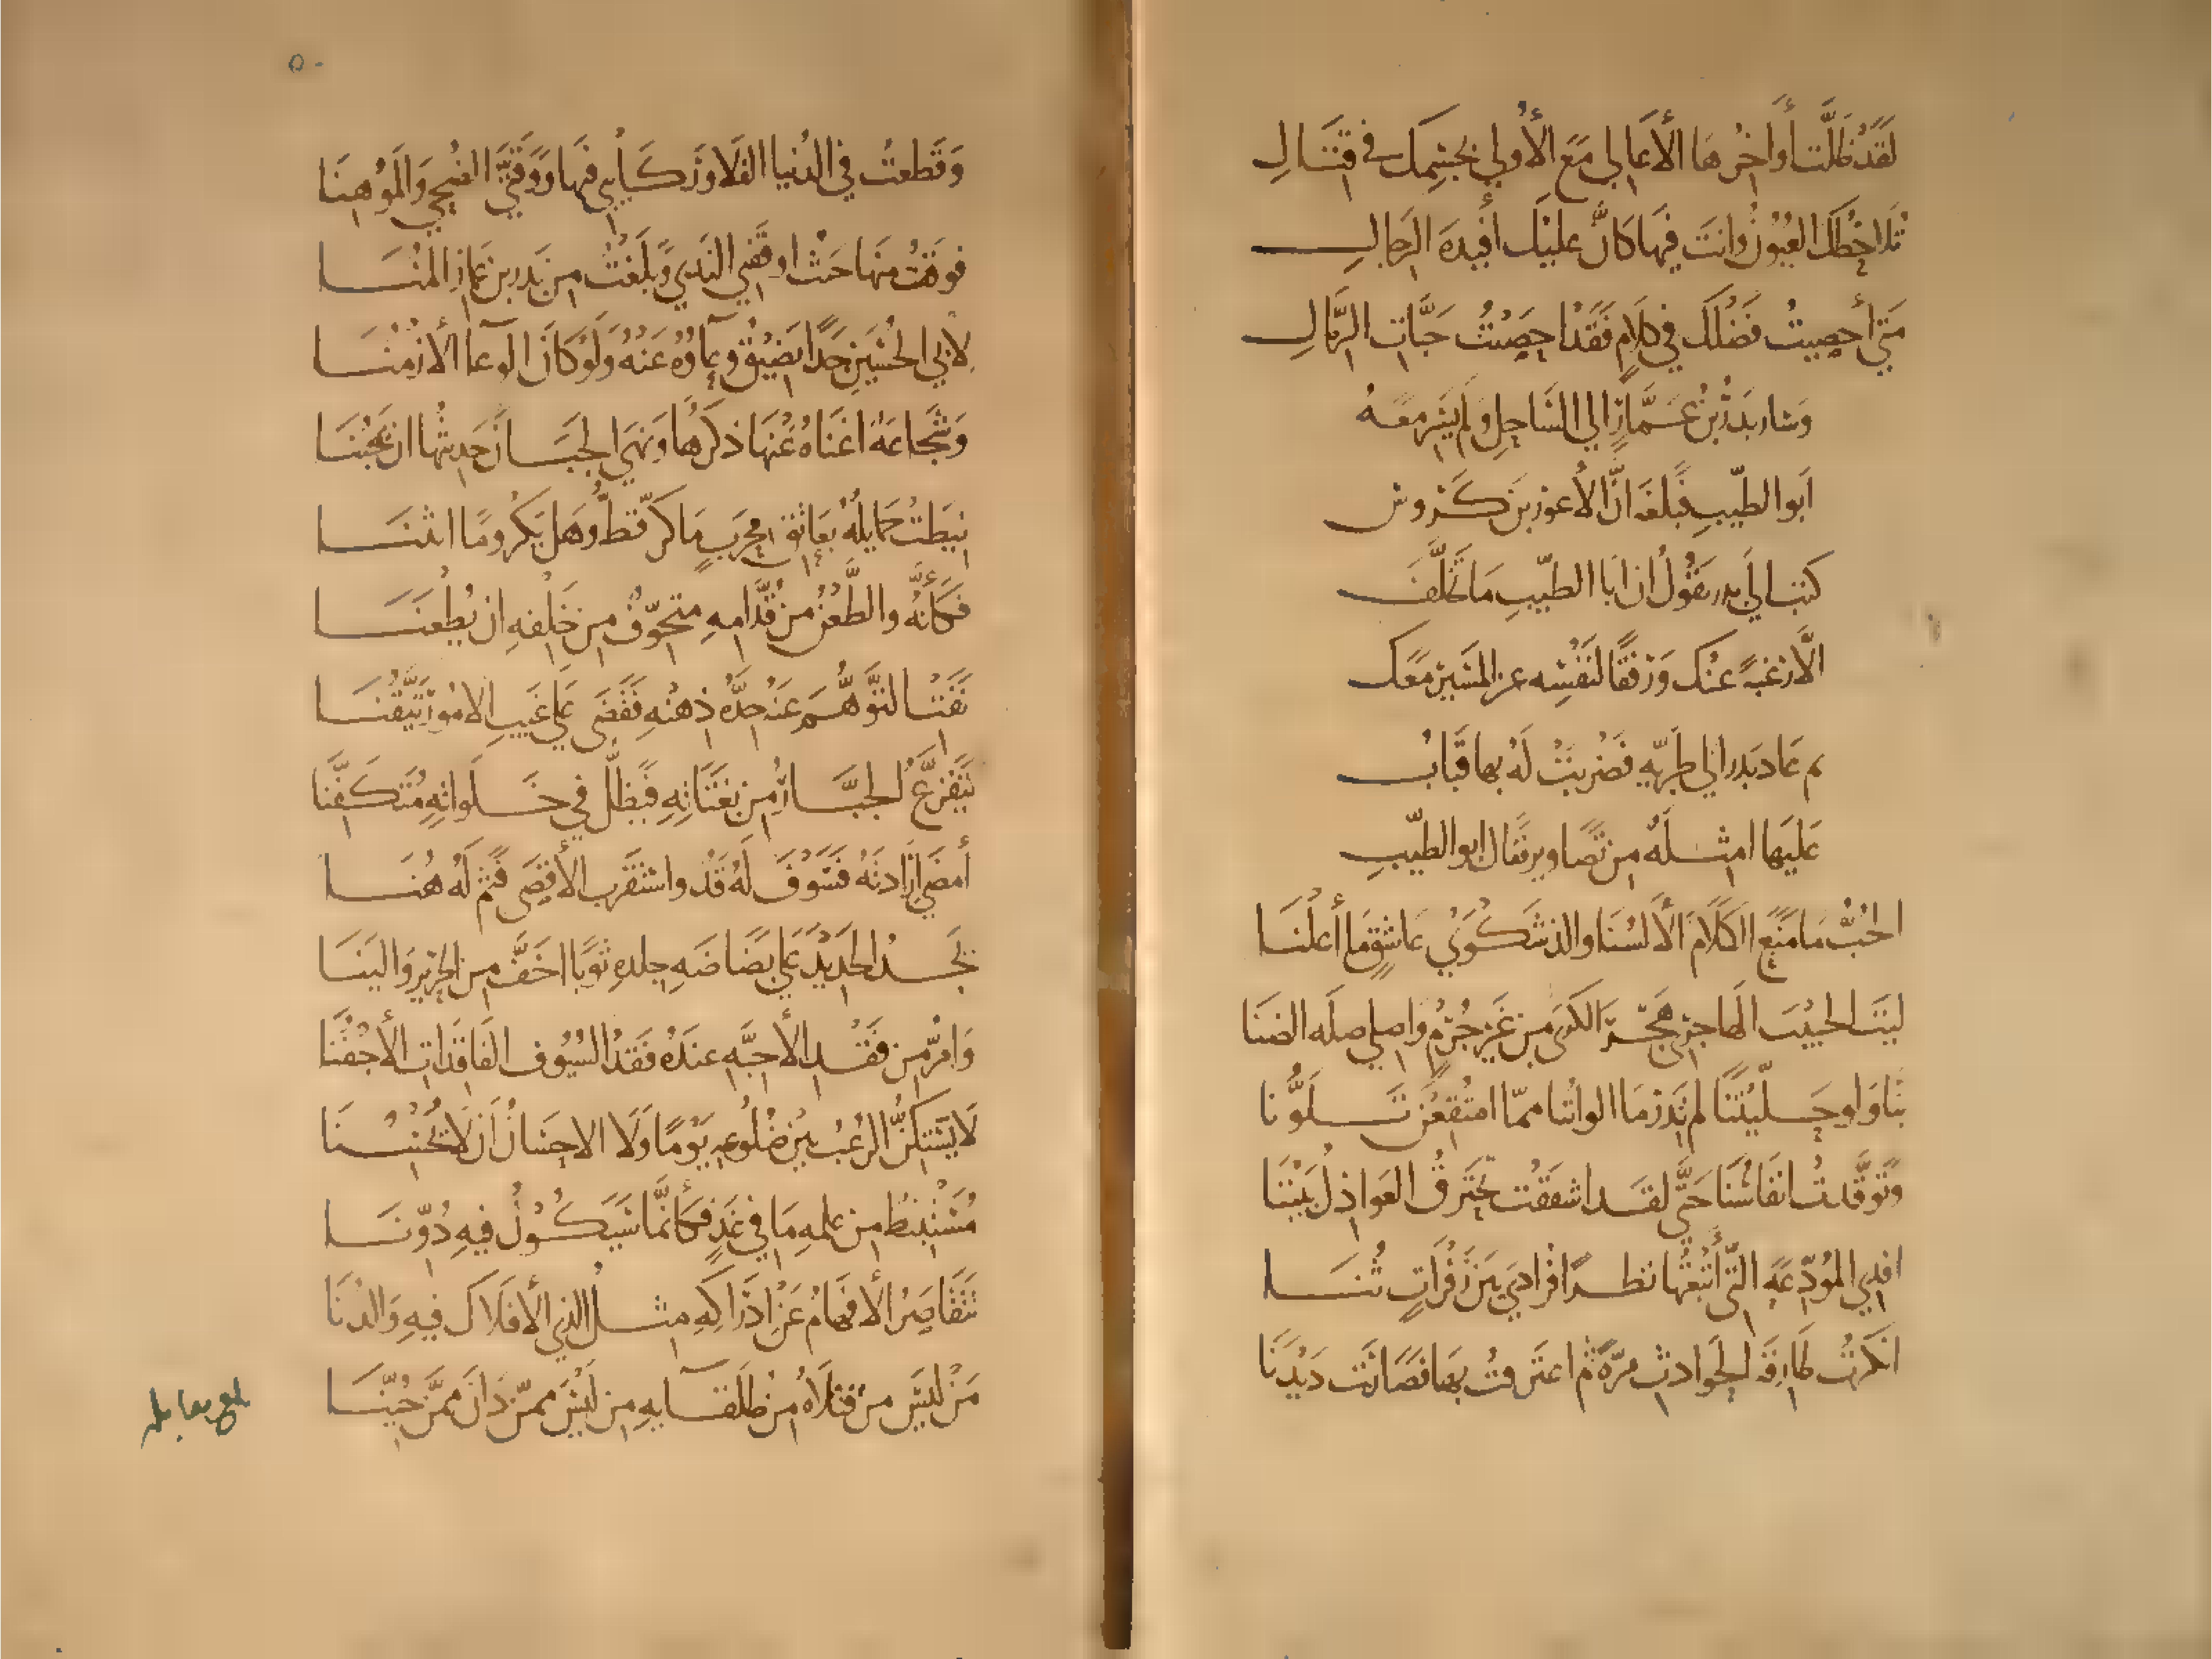 لَقَد ظَلَّت أَواخِرُهَا الأَعَالي مَعَ الأُولي بجِسمِكَ في قِتَالِ
تُلاحِظُكَ العُيُونُ وانتَ فِيهَا كَانَّ عليْكَ أَفْيِدَةَ الرَجالِ
مَتي أُحصِيتُ فَضْلَكَ في كَلامٍ فَقَدْ احصَيْتُ حَبَّاتِ الرِّمَالِ
وَسَار بَدْرُ بْنُ عَمَّارٍ الي السَّاحِلِ وَلَم يَسِر معَهُ
ابَوا الطيّبِ فَبلغَه انَّ الأعوَر بنَ كَرَوش
كتب الَي بدر يَقُولُ ان ابَا الطيّبِ مَا تَخَلَّفَ
الَّا رَغبَةً عَنْكَ وَرَفعًا لنَفْسِه عن المَسَيرِ مَعَكَ
ثم عَادَ بَدر الي طَبَريّهِ فَضُربَتْ لَهُ بها قِبَابٌ
عَليَها امثِلَهٌ مِن تَصَاوير فقال ابو الطيّبِ
الحُبُّ مَا مَنَعَ الكَلَامَ الأَلسُنَا والذ شَكْوَي عَاشِقٍ ما أَعلَنَا
ليتَ الحَبيْبَ الهَاجِري هَجْرَ الكَرَى مِن غَيرِ جُرْمٍ واصلي صِلَه الضَنَا
بِنَّا وَلو حَلّيْتَنَا لم تَدرِ مَا الواننا ممّا امتُقِعْنَ تَلَوُّنا
وَتَوَقَّدت انفَاسُنَا حَتّي لَقَد اشفَقْتُ تَحْتَرقُ العَواذِلُ بَيْنَنا
افدِي المُوَدِّعَةِ التّي أَتْبَعْتُهَا نظرًا فُرَادَي بَينَ زَفَرَاتٍ ثُنَا
انكَرْتُ طَارِقَهَ الحَوَادثِ مَرَّةً ثُم اعتَرفتُ بَها فصَارَت دَيْدَنَا
٥٠
وَقَطعتُ في الدُنيا الفَلا وَرَكَايبي فِيهَا وَوَقتَيَّ الضُحي وَالَمُوهِنَا
فوقَفْتُ مِنهَا حَيْثُ اوقَفَني النَدَي وَبَلَغتُ مِن بَدرِ بنِ عمَّارِ المُنَا
لِأبي الحُسَينِ جَدًا يَضِيْقُ وِعَاؤُهُ عَنْهُ وَلَو كَانَ الوِعَا الأَزمُنَا
وَشَجَاعَةٌ اغنَاهُ عَنهَا ذكرُهَا وَنهَى الجَبَانَ حَدِيثُهَا ان يَجبُنَا
نِيطَتْ حَمَايلُهُ بعَاتِقِ مِحرَبٍ مَا كَرَّ قطُّ وهَل يَكرُ ومَا انثنَا
فَكَأنَّهُ والطَّعْنُ مِن قُدَّامِهِ مُتخَوِّفٌ مِن خَلْفِهِ ان يُطْعَنَا
نَفَتِ التَوَّهُّمَ عَنهُ حِدَّهُ ذِهنِهِ فَقَضَى عَلي غَيبِ الامُورِ تَيَقُّنَا
يَتَفَزَّعُ الجبَّارُ مِن بَغَتَاتِهِ فَيَظلُّ في خَلَواتِهِ مُتَكَفِّنَا
أَمضَي ارَادتَهُ فَسَوْفَ لَهُ قَدْ واستَقْرَب الأَقصَى فَثَمّ لَهُ هُنَا
يَجِدُ الحَدِيْدَ عَلي بَضَاضَهِ جِلدِهِ ثَوبًا اخَفَّ مِن الحَرِيرِ وَاليَنَا
وَامَرُّ مِن فَقْدِ الأَحِبَّهِ عندَهُ فَقدُ السُيُوفِ الفَاقِدَاتِ الأَجفُنَا
لَا يَستَكِنُّ الرُعبُ بَيْنَ ضُلُوعِهِ يَوْمًا وَلَا الاحِسَانُ أن لَا يُحْسِنَا
مُستَنْبِطٌ مِن عِلمِهِ مَا في غَدٍ فَكَأنَّمَا سَيَكُونُ فِيهِ دُوِّنَا
تَتَقَاصَرُ الأَفهَامُ عَن ادَرَاكِهِ مِثلُ الذِي الأَفلَاكُ فِيهِ وَالدُنَا
مَن لَيْسَ مِن قتلَاهُ مِنْ طُلَقَايِهِ مِن لَيْسَ مِمَّن دَانَ مِمَّن حُيّنَا
بلغ مقابله